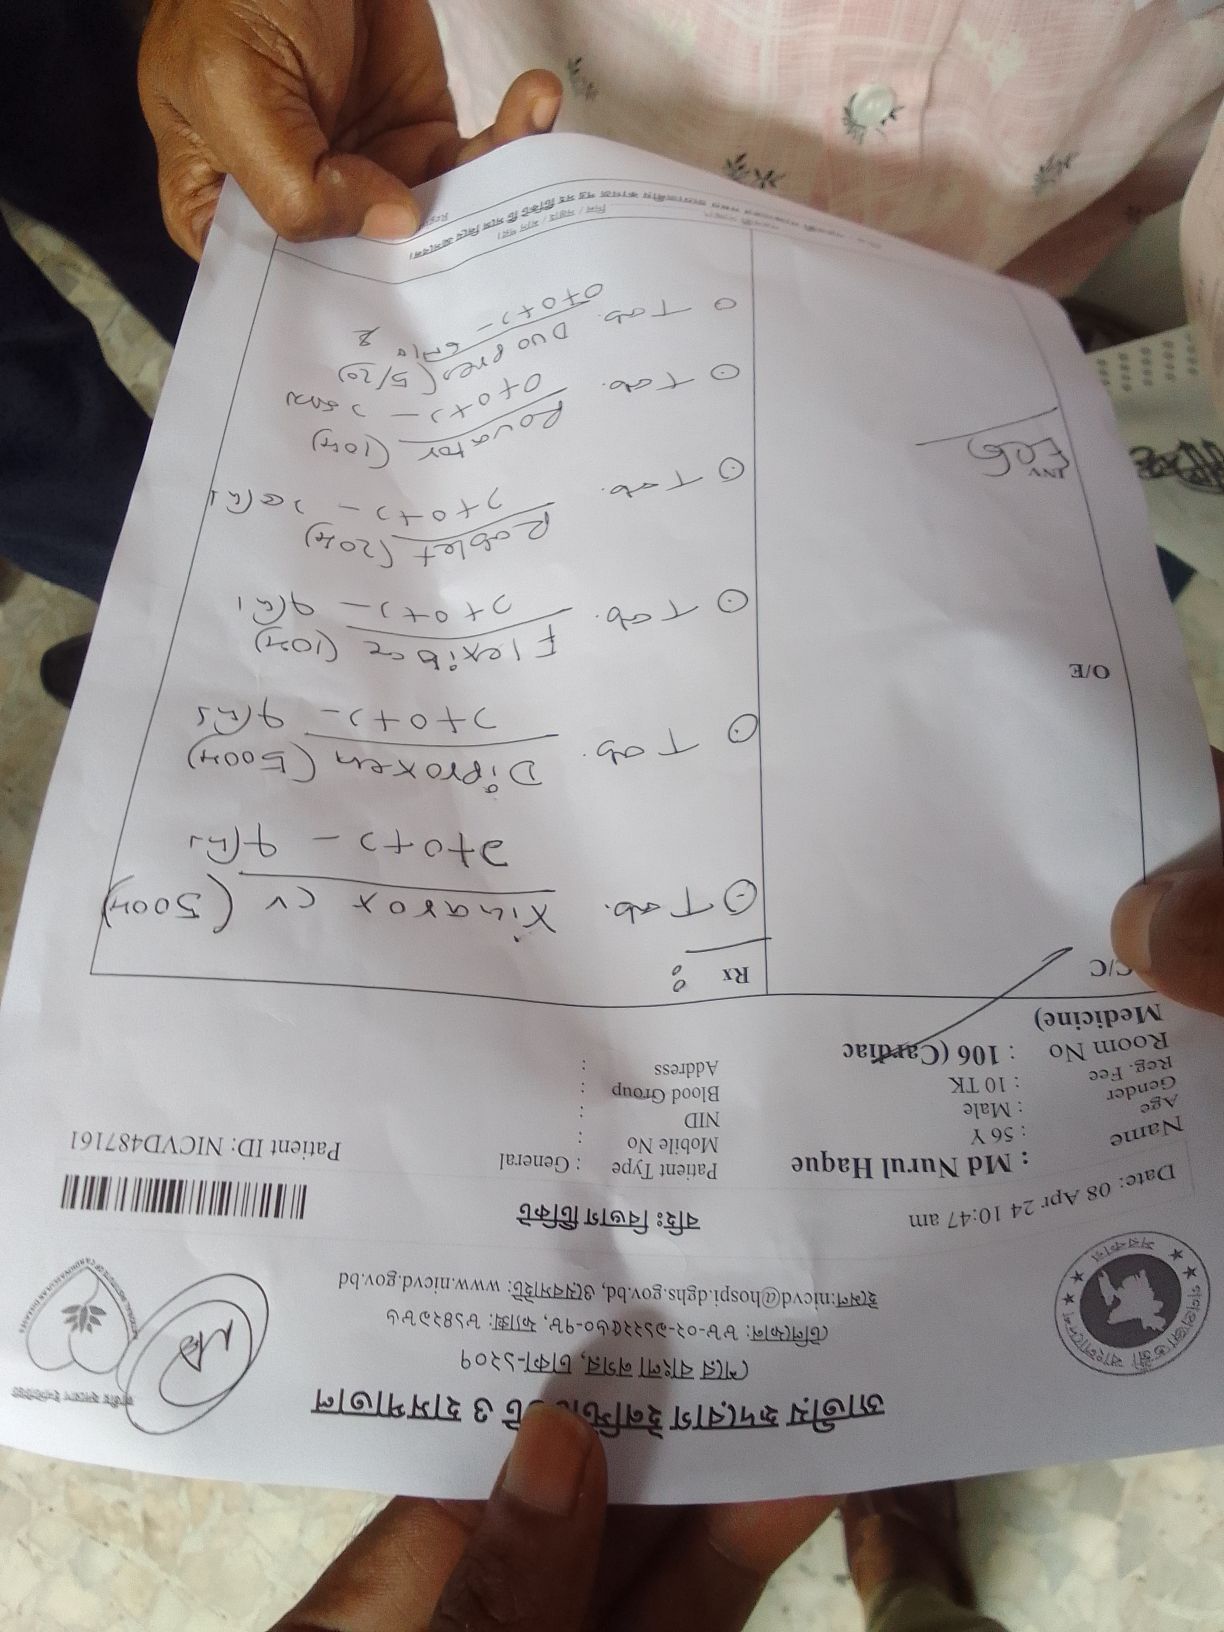 জাতীয় হৃদরোগ ইনস্টিটিউট ও হাসপাতাল
শেরে বাংলা নগর, ঢাকা-১২০৭
টেলিফোন: ৮৮-০২-৯১২২৫৬০-৭৮, ফ্যাক্স: ৮১৪২৯৮৬
ইমেল:nicvd@hospi.dghs.gov.bd, ওয়েবসাইট: www.nicvd.gov.bd
গণপ্রজাতন্ত্রী বাংলাদেশ
সরকার
জাতীয় হৃদরোগ ইনস্টিটিউট
NATIONAL INSTITUTE OF CARDIOVASCULAR DISEASES
Date: 08 Apr 24 10:47 am
বহিঃ বিভাগ টিকিট
Name : Md Nurul Haque
Age : 56 Y
Gender : Male
Reg. Fee : 10 TK
Room No : 106 (Cardiac
Medicine)
Patient Type : General
Mobile No :
NID :
Blood Group :
Address :
Patient ID: NICVD487161
C/C
O/E
INV
ECG
Rx :
Tab. Xinarox cv (500
১+০+১ - ৭দিন
Tab. Diproxen (500
১+০+১ - ৭দিন
Tab. Flexibac (10
১+০+১ - ৭দি
Tab. Rablet (20
১+০+১ - ১৫দিন
Tab. Rovator (10
০+০+১ - ১মাস
Tab. Duopres (5/20)
০+০+১ -
দিন / সপ্তাহ / মাস পর।
কাগজ পত্র সহ টিকিট টি সঙ্গে নিয়ে আসবেন।